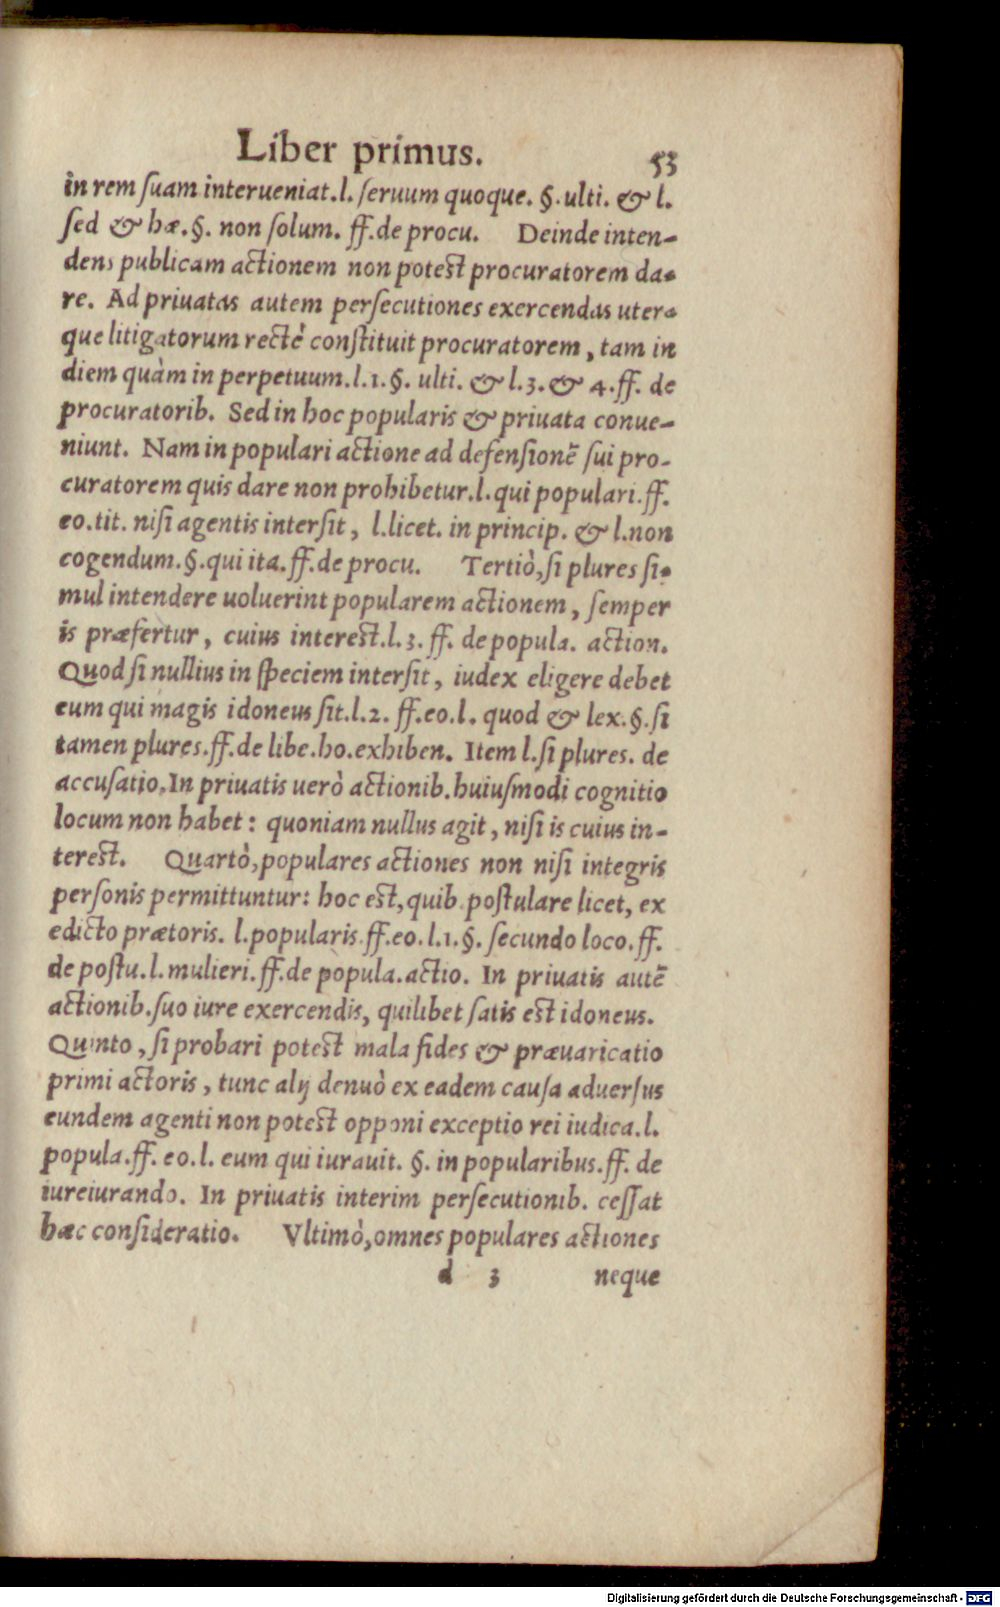 Liber primus. 53
in rem ſuam interueniat.l. ſeruum quoque. §. ulti. & l.
ſed & hæ.§. non ſolum. ff.de procu. Deinde inten-
dens publicam actionem non poteſt procuratorem da-
re. Ad priuatas autem perſecutiones exercendas uter-
que litigatorum rectè conſtituit procuratorem, tam in
diem quàm in perpetuum.l.1.§. ulti. & l.3.& 4.ff. de
procuratorib. Sed in hoc popularis & priuata conue-
niunt. Nam in populari actione ad defenſionẽ ſui pro-
curatorem quis dare non prohibetur.l.qui populari.ff.
eo.tit. niſi agentis interſit, l.licet. in princip. & l.non
cogendum.§.qui ita.ff.de procu. Tertiò,ſi plures ſi-
mul intendere uoluerint popularem actionem, ſemper
is præfertur, cuius intereſt.l.3. ff. de popula. action.
Quod ſi nullius in ſpeciem interſit, iudex eligere debet
eum qui magis idoneus ſit.l.2. ff.eo.l. quod & lex.§.ſi
tamen plures.ff.de libe.ho.exhiben. Item l.ſi plures. de
accuſatio.In priuatis uerò actionib.huiuſmodi cognitio
locum non habet: quoniam nullus agit, niſi is cuius in-
tereſt. Quartò,populares actiones non niſi integris
perſonis permittuntur: hoc eſt,quib.poſtulare licet, ex
edicto prætoris. l.popularis.ff.eo.l.1.§. ſecundo loco.ff.
de poſtu.l.mulieri.ff.de popula.actio. In priuatis autẽ
actionib.ſuo iure exercendis, quilibet ſatis eſt idoneus.
Quinto, ſi probari poteſt mala fides & præuaricatio
primi actoris, tunc alij denuò ex eadem cauſa aduerſus
eundem agenti non poteſt opponi exceptio rei iudica.l.
popula.ff. eo.l. eum qui iurauit. §. in popularibus.ff. de
iureiurando. In priuatis interim perſecutionib. ceſſat
hæc conſideratio. Vltimò,omnes populares actiones
d 3 neque
Digitalisierung gefördert durch die Deutsche Forschungsgemeinschaft - DFG